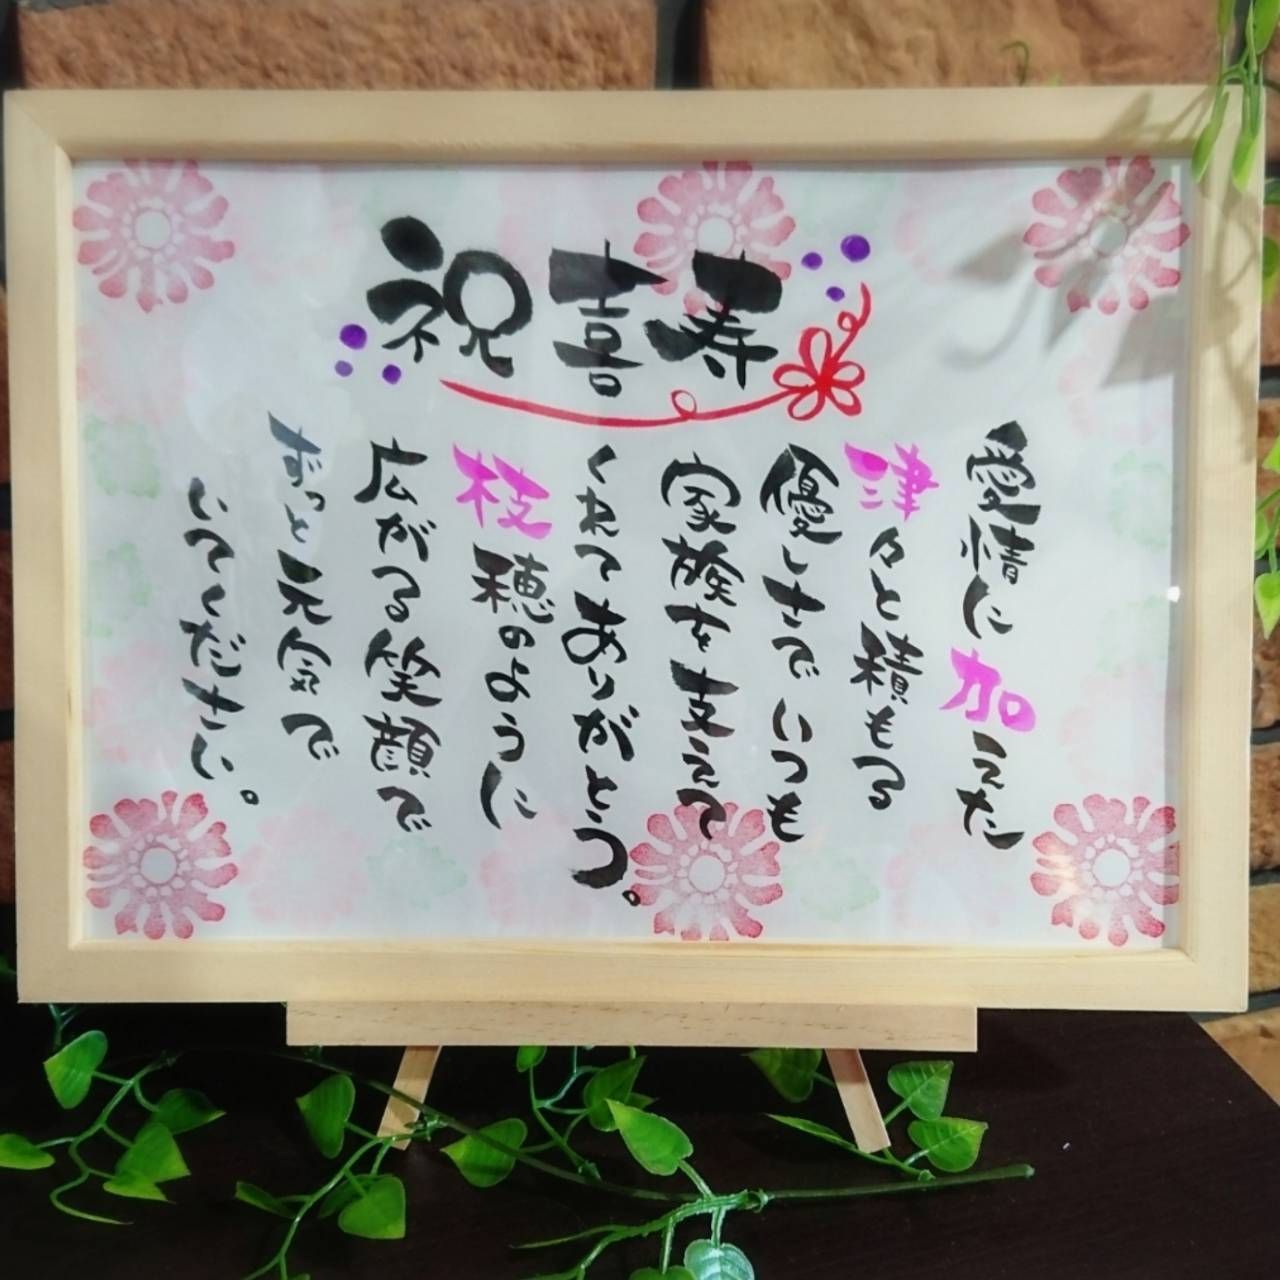 祝喜寿
愛情に加えた
津々と積もる
優しさでいつも
家族を支えて
くれてありがとう。
枝穂のように
広がる笑顔で
ずっと元気で
いてください。